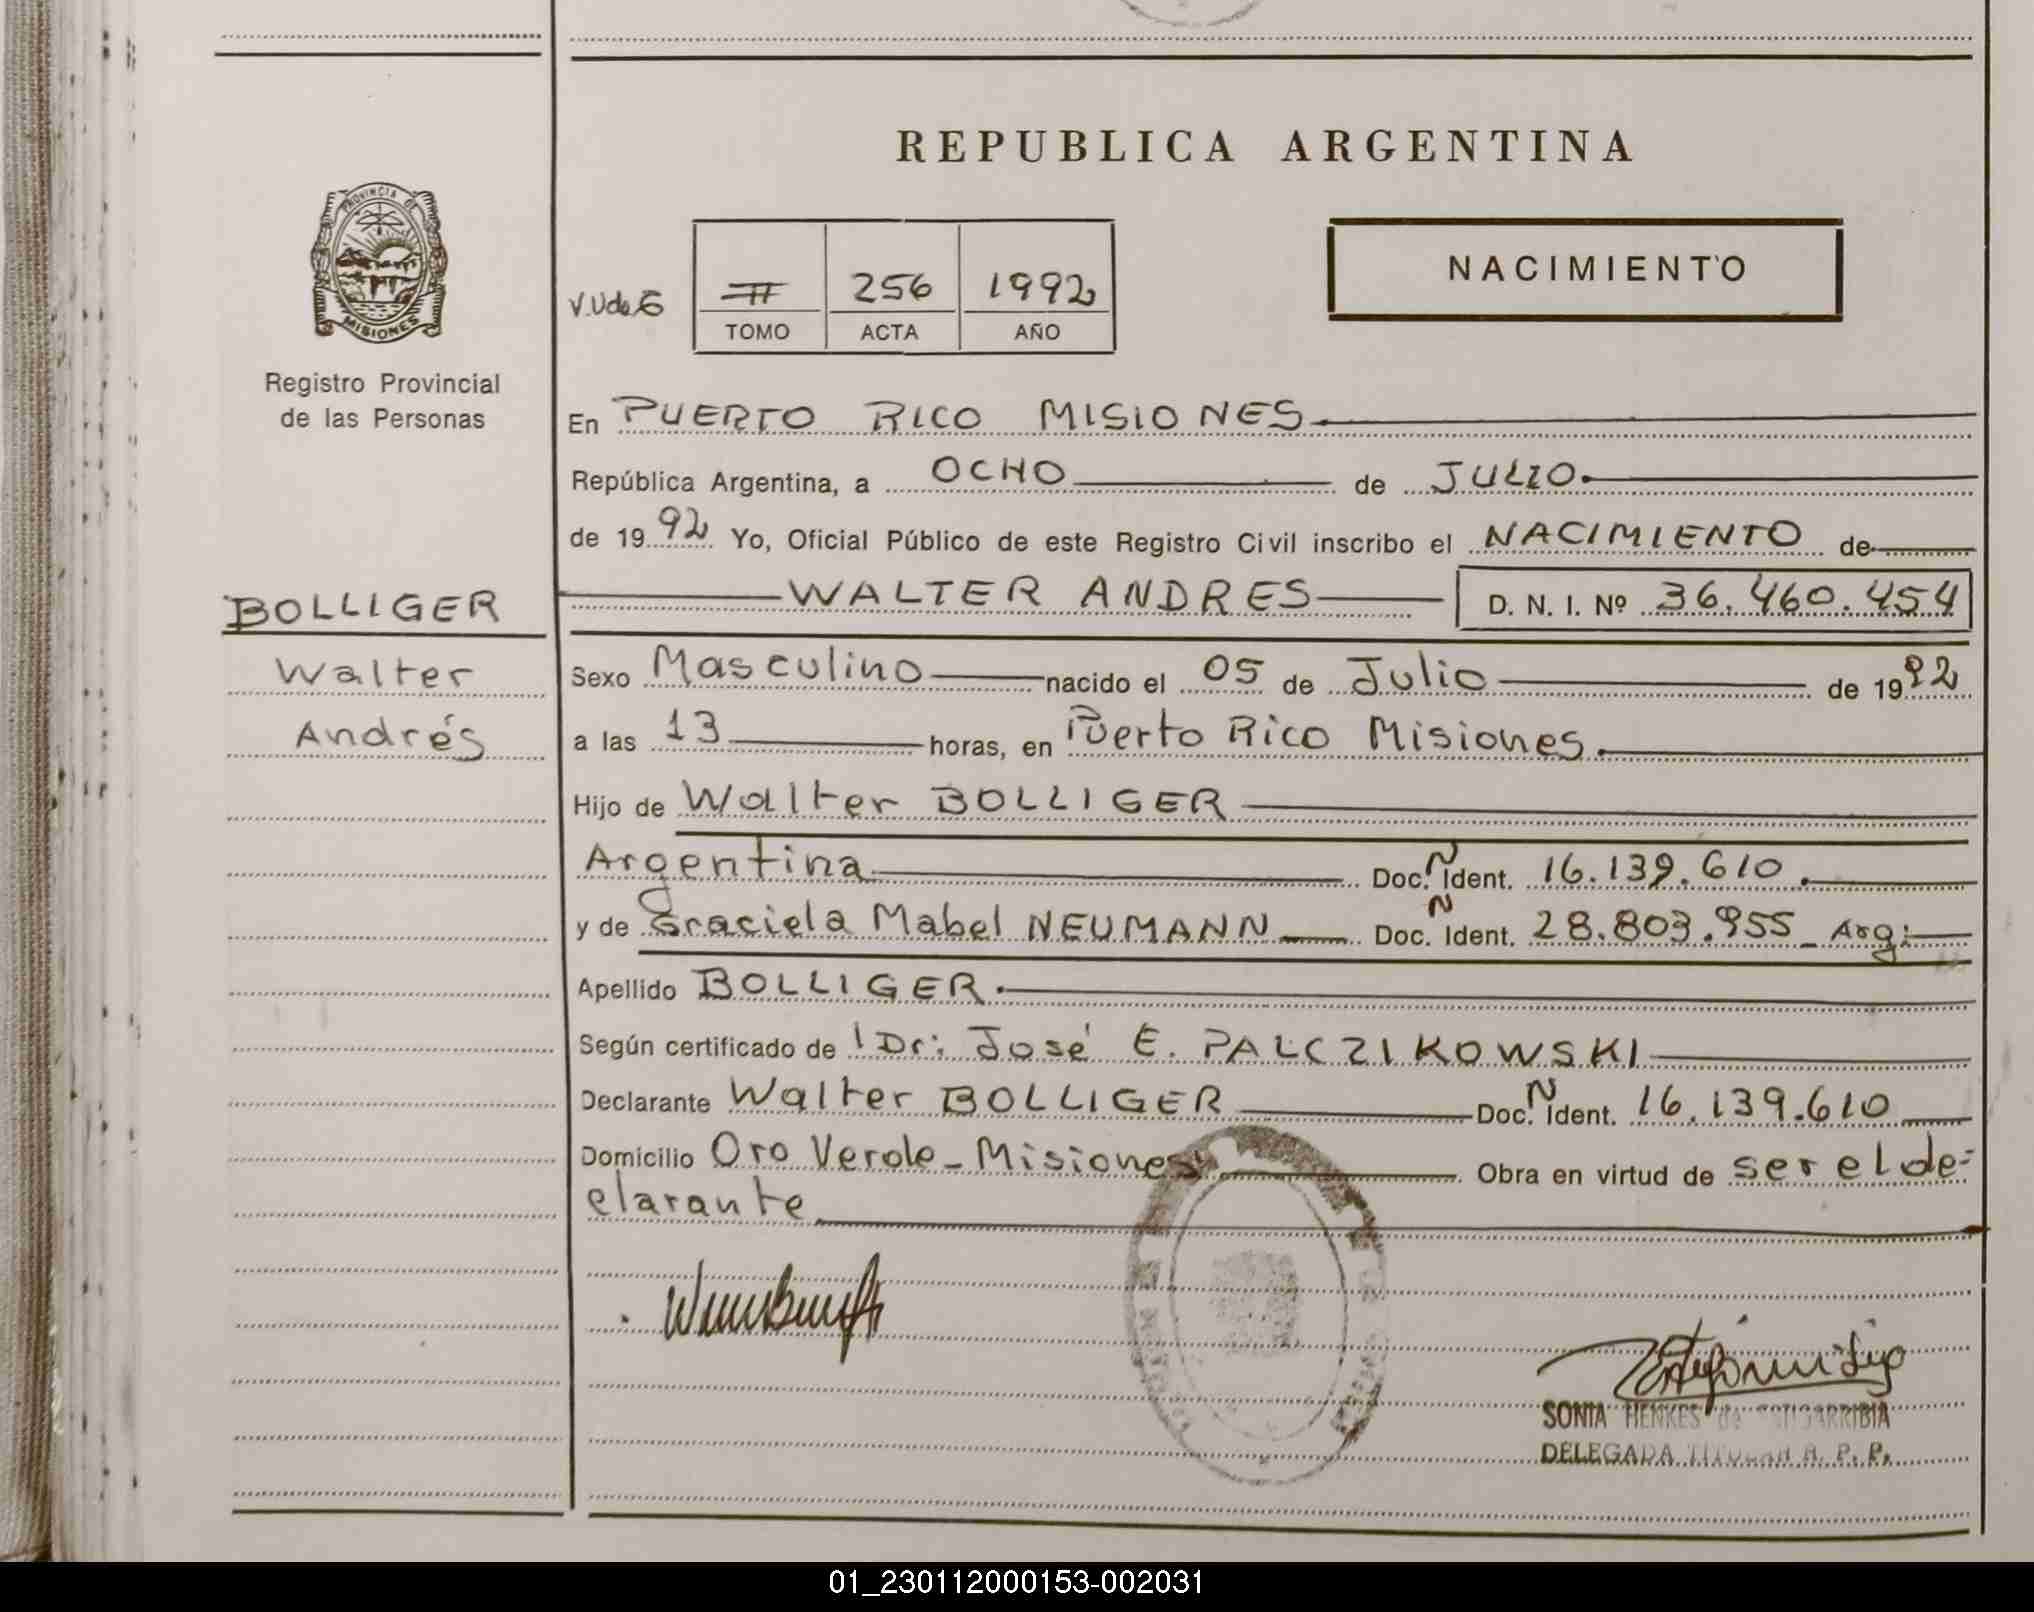 REPUBLICA ARGENTINA
PROVINCIA DE
MISIONES
Registro Provincial
de las Personas
V.U de E
II 256 1992
TOMO ACTA AÑO
NACIMIENTO
En PUERTO RICO MISIONES
República Argentina, a OCHO de JULIO
de 1992 Yo, Oficial Público de este Registro Civil inscribo el NACIMIENTO de
WALTER ANDRES D. N. I. Nº 36.460.454
BOLLIGER
Walter
Andrés
Sexo Masculino nacido el 05 de Julio de 1992
a las 13 horas, en Puerto Rico Misiones.
Hijo de Walter BOLLIGER
Argentina Doc. N Ident. 16.139.610.
y de Graciela Mabel NEUMANN Doc. N Ident. 28.803.955 - Arg:
Apellido BOLLIGER.
Según certificado de Dr: José E. PALCZIKOWSKI
Declarante Walter BOLLIGER Doc. N Ident. 16.139.610
Domicilio Oro Verde - Misiones Obra en virtud de ser el de-
clarante
SONIA HENKES de SATIGARRIBIA
DELEGADA TITULAR R. P. P.
01_230112000153-002031